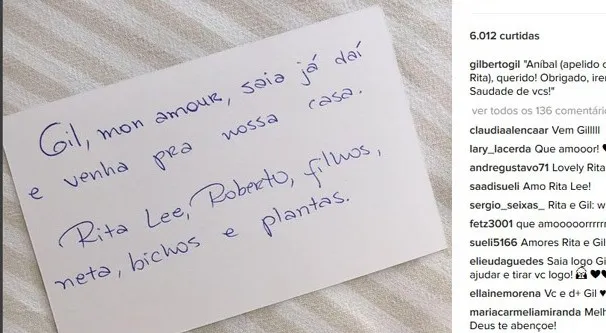 Gil, mon amour, saia já daí
e venha pra nossa casa.
Rita Lee, Roberto, filhos,
neta, bichos e plantas.
6.012 curtidas
gilbertogil "Aníbal (apelido
Rita), querido! Obrigado,
Saudade de vcs!"
ver todos os 136
claudiaalencaar Vem Gilllll
lary_lacerda Que amooor!
andregustavo71 Lovely Rita
saadisueli Amo Rita Lee!
sergio_seixas_ Rita e Gil:
fetz3001 que
sueli5166 Amores Rita e Gil
elieudaguedes Saia logo
ajudar e tirar vc logo!
ellainemorena Vc e d+ Gil ♥
mariacarmeliamiranda
Deus te abençoe!